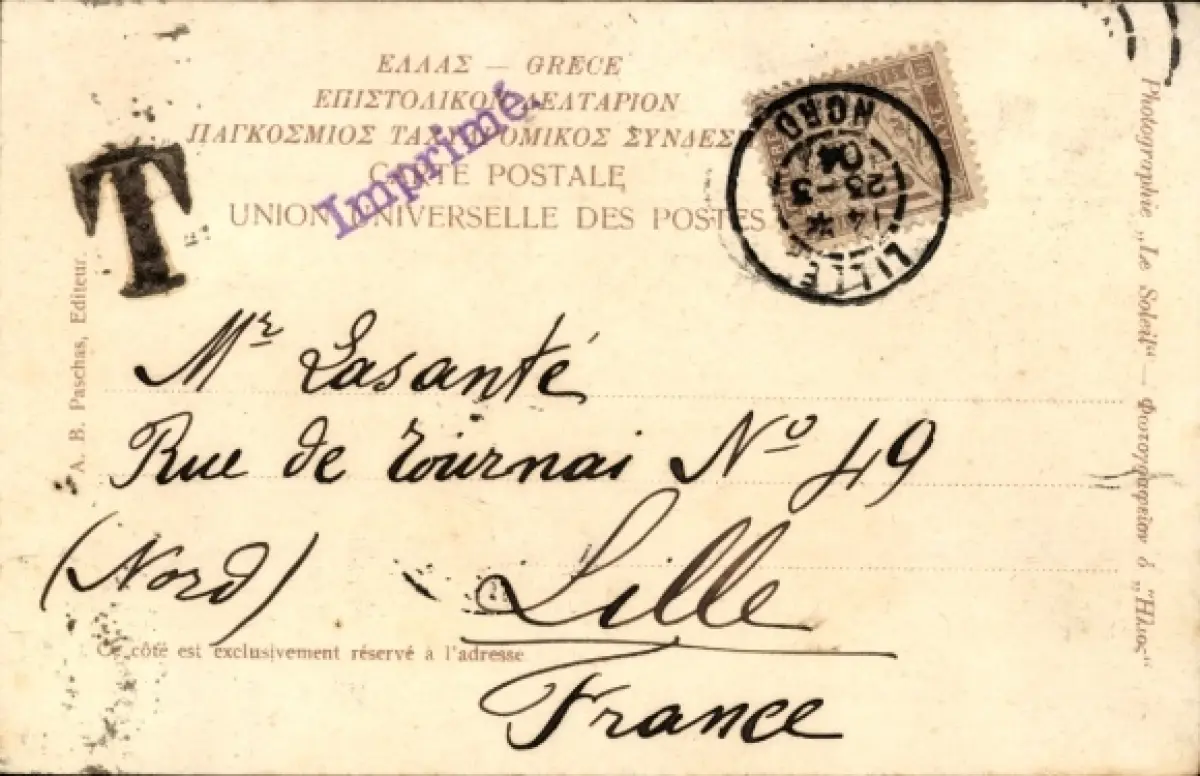 ΕΛΛΑΣ — GRECE
ΕΠΙΣΤΟΛΙΚΟΝ ΔΕΛΤΑΡΙΟΝ
ΠΑΓΚΟΣΜΙΟΣ ΤΑΧΥΔΡΟΜΙΚΟΣ ΣΥΝΔΕΣ
CARTE POSTALE
UNION UNIVERSELLE DES POSTES
Imprimé.
T
LILLE
14 * 
23 - 3
04
NORD
A. B. Paschas, Editeur.
Mr Lasanté
Rue de Tournai No 49
(Nord) Lille
France
Ce côté est exclusivement réservé à l'adresse
Photographie „Le Soleil“ — Φωτογραφείον ὁ „Ἥλιος“